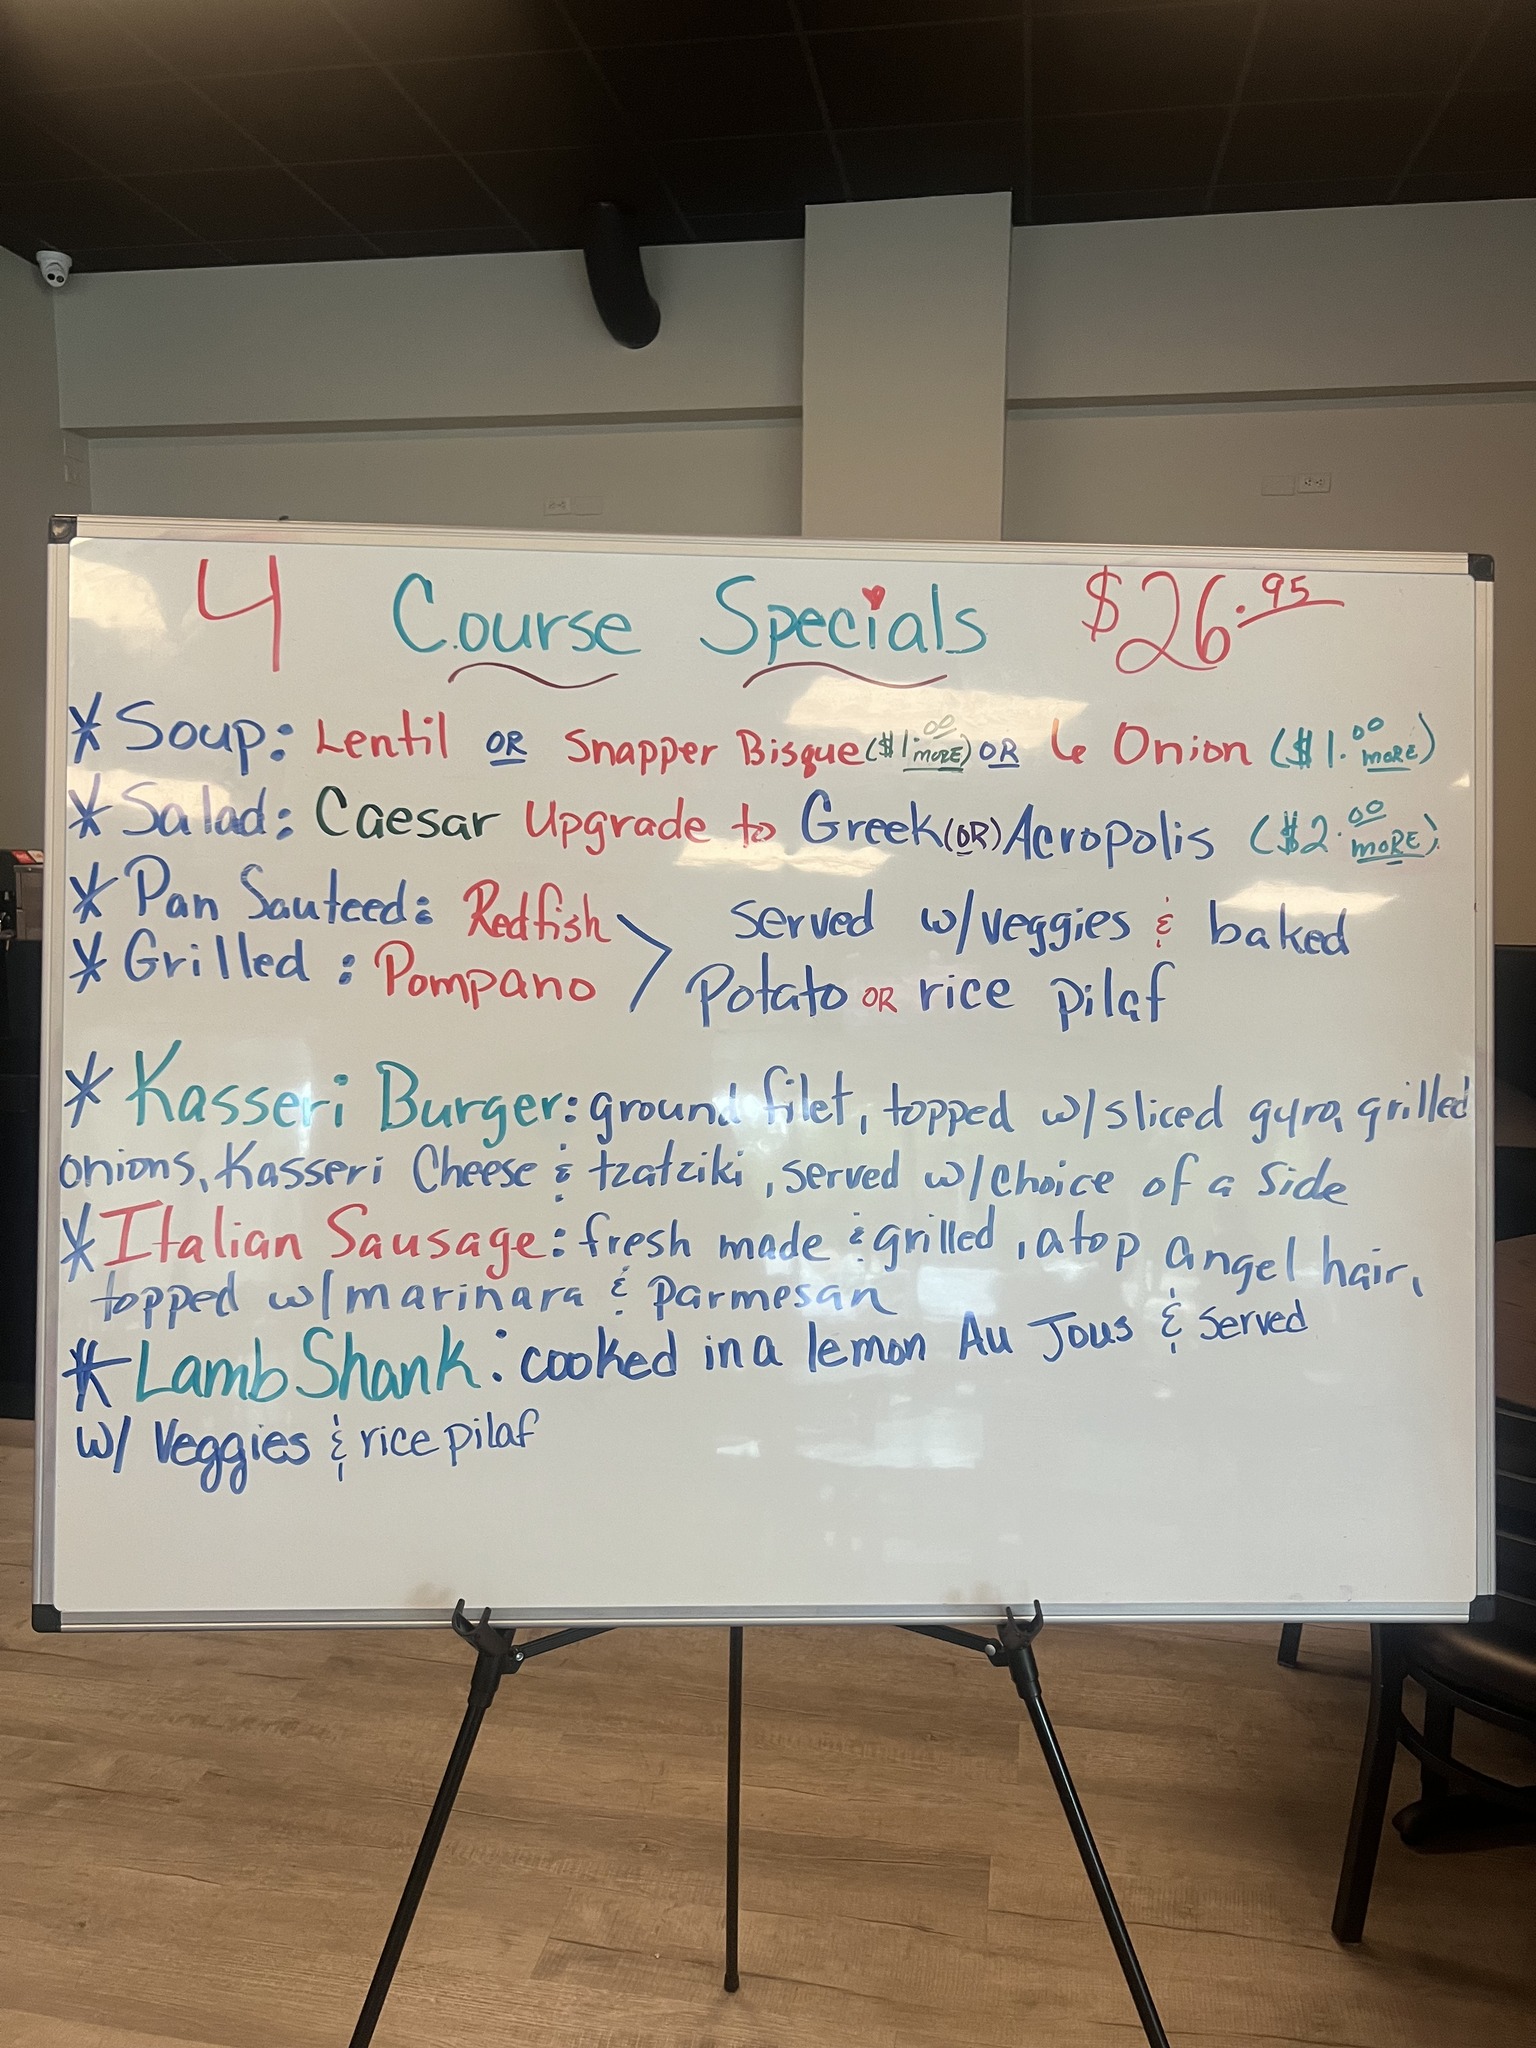 4 Course Specials $26.95
* Soup: Lentil OR Snapper Bisque ($1.00 MORE) OR 6 Onion ($1.00 MORE)
* Salad: Caesar Upgrade to Greek (OR) Acropolis ($2.00 MORE)
* Pan Sauteed: Redfish
* Grilled: Pompano
> Served w/veggies & baked
Potato OR rice pilaf
* Kasseri Burger: ground filet, topped w/sliced gyro, grilled
onions, Kasseri Cheese & tzatziki, served w/choice of a side
* Italian Sausage: fresh made & grilled, atop angel hair,
topped w/marinara & Parmesan
* Lamb Shank: cooked in a lemon Au Jous & served
w/ Veggies & rice pilaf